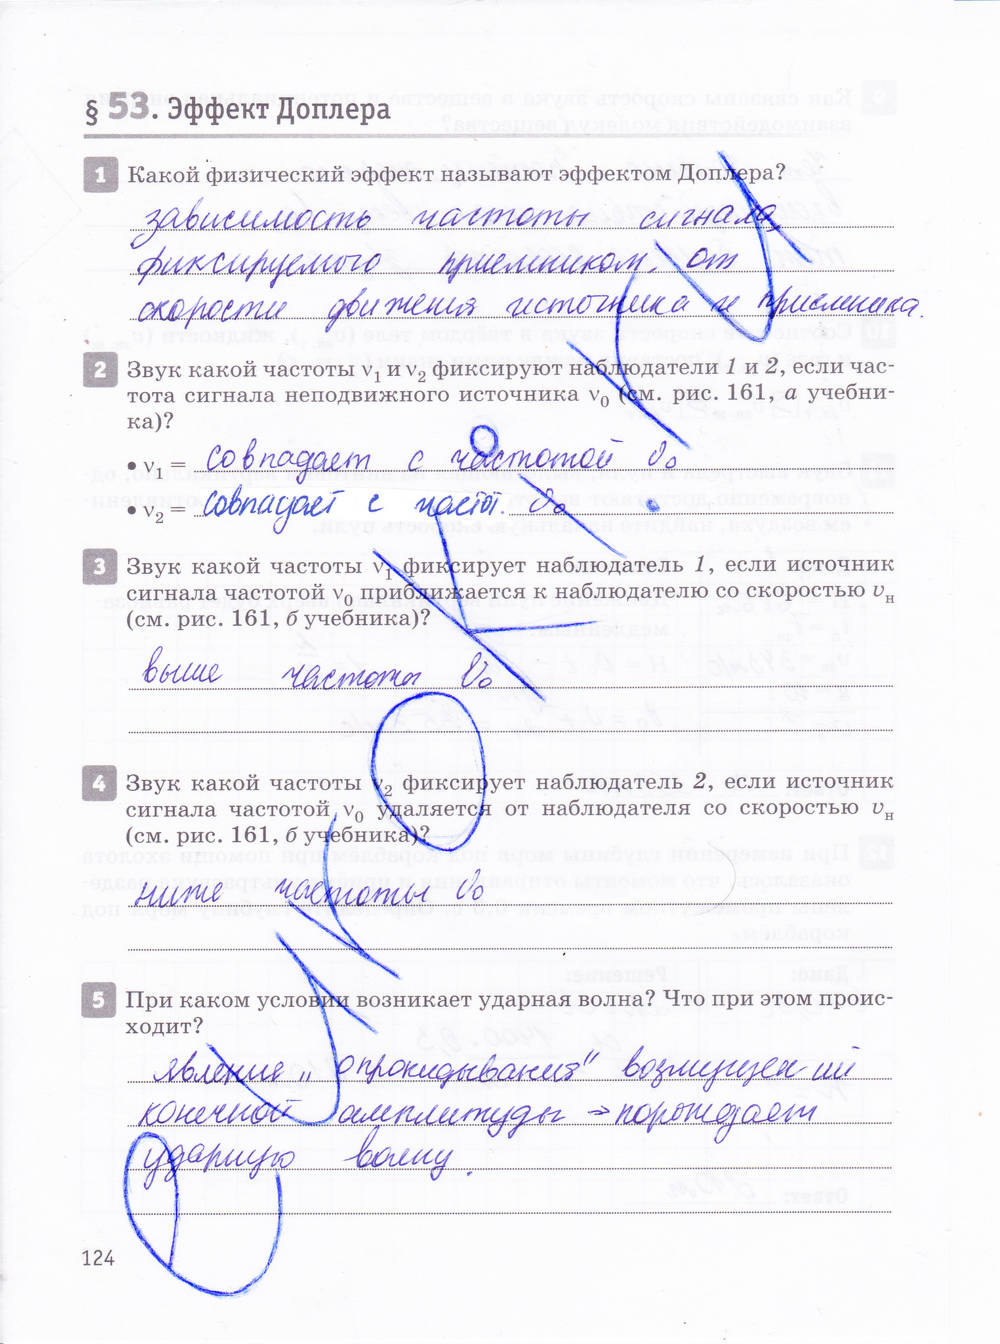 § 53. Эффект Доплера
1 Какой физический эффект называют эффектом Доплера?
зависимость частоты сигнала,
фиксируемого приемником, от
скорости движения источника и приемника.
2 Звук какой частоты ν₁ и ν₂ фиксируют наблюдатели 1 и 2, если час-
тота сигнала неподвижного источника ν₀ (см. рис. 161, а учебни-
ка)?
• ν₁ = совпадает с частотой ν₀
• ν₂ = совпадает с частот. ν₀
3 Звук какой частоты ν₁ фиксирует наблюдатель 1, если источник
сигнала частотой ν₀ приближается к наблюдателю со скоростью υн
(см. рис. 161, б учебника)?
выше частоты ν₀
4 Звук какой частоты ν₂ фиксирует наблюдатель 2, если источник
сигнала частотой ν₀ удаляется от наблюдателя со скоростью υн
(см. рис. 161, б учебника)?
ниже частоты ν₀
5 При каком условии возникает ударная волна? Что при этом проис-
ходит?
явления „опрокидывания" возмущений
конечной амплитуды → порождает
ударную волну.
124